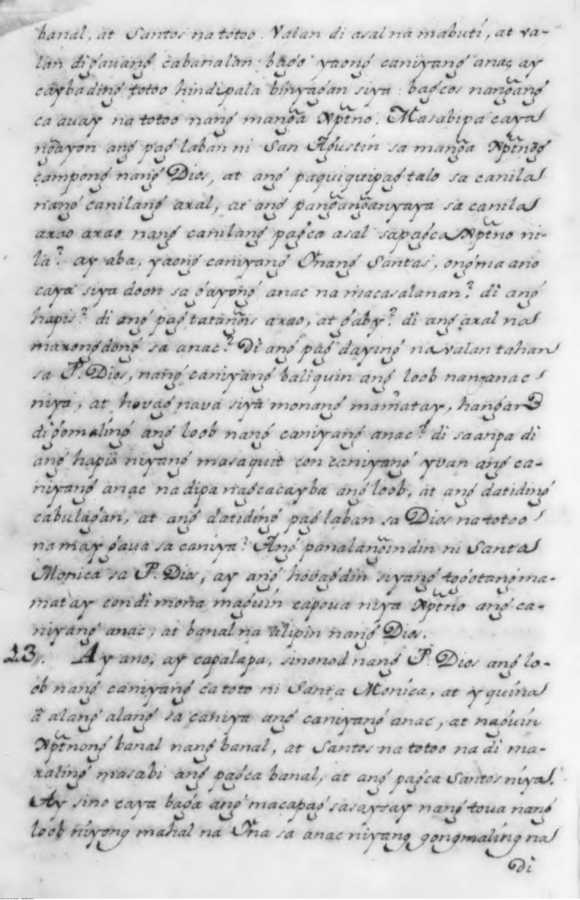 banal, at Santos na totoo. Valan di asal na mabuti, at va-
lan digauang cabanalan: bago yaong caniyang anac, ay
caybading totoo hindipala binyagan siya: bagcos nangang
ca auay na totoo nang manga Xptño. Masabipa caya
ngayon ang pag laban ni San Agustin sa manga Xptñog
campong nang Dios, at ang paquiquipagtalo sa canila
nang canilang aral, at ang pangangangyaya sa canila
arao arao nang canilang pagca asal sapagca Xptño ni-
la? ay aba, yaong caniyang Ynang Santas, ongma ano
caya siya doon sa gayong anac na macasalanan? di ang
hapis? di ang pag tatangis arao, at gaby? di ang aral na
marongdong sa anac? Di ang pag dayng na valan tahan
sa P. Dios, nang caniyang baliquin ang loob nang anac
niya, at hovag nava siya monang mamatay, hangan
digomaling ang loob nang caniyang anac? di saanpa di
ang hapis niyang masaquit con caniyang yvan ang ca-
niyang anac na dipa nagcacayba ang loob, at ang datiding
cabulagan, at ang datiding pag laban sa Dios na totoo
na may gaua sa caniya? Ang panalangindin ni Santa
Monica sa P. Dios, ay ang hovagdin siyang togotang ma-
matay condi mona magvin capova niya Xptño ang ca-
niyang anac, at banal na alipin nang Dios.
23. Ay ano, ay capalapa, sinonod nang P. Dios ang lo-
ob nang caniyang catoto ni Santa Monica, at yquina
a alang alang sa caniya ang caniyang anac, at nagvin
Xptñong banal nang banal, at Santos na totoo na di ma-
raling masabi ang pagca banal, at ang pagca Santos niya.
Ay sino caya baga ang macapag sasaysay nang toua nang
loob niyong mahal na Yna sa anac niyang gongmaling na
di